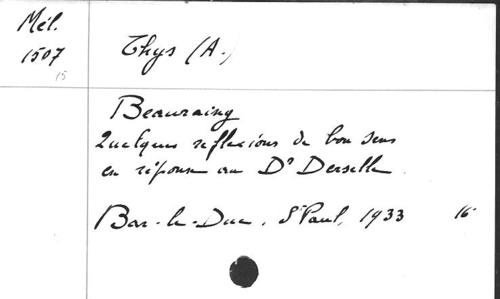 Mél.
1507
15
Thys (A.)
Beauraing
Quelques reflexions de bon sens
en réponse au Dr Derselle.
Bar-le-Duc, St Paul, 1933 16°